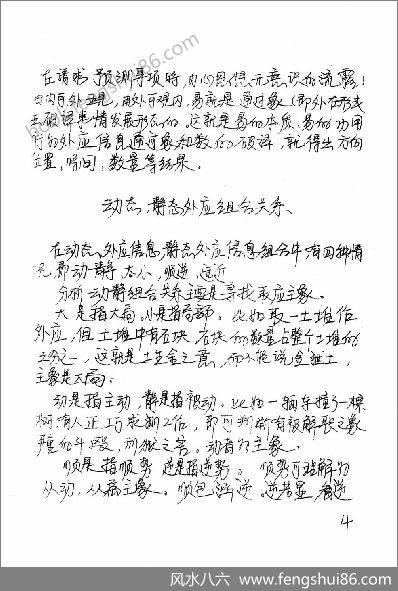 在请求预测事项时，内心思想无意识的流露！
由内可外现，由外可观内，易就是通过象（即外在形式
去破译事情发展形态的，这就是易的本质，易的功用
的外应信息通过象和数的破译，就得出方向
位置，时间，数量等结果。
动态、静态外应组合关系、
在动态外应信息，静态外应信息组合中有四种情
况，即动静 大小，顺逆 远近
分析动静组合关系主要是寻找取应主象。
大是指大局，小是指局部。比如取一土堆作
外应，但土堆中有石块，石块的数量占整个土堆的
之一，这就是土生金之意，而不能说金泄土，
主象是大局。
动是指主动，静是指被动。比如一辆车撞了一棵
树有人正巧求测工作，即可判断有被解聘之象
斗殴，刑狱之。动者为主象。
顺是指顺势 逆是指逆势。顺势可理解为
从动，从主象。顺包逆。逆若显，
4
风水八六 www.fengshui86.com